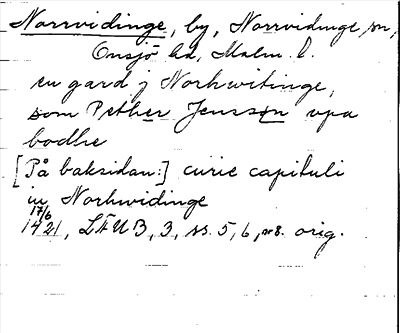 Norrvidinge, by, Norrvidinge sn,
Onsjö hd, Malm. l.
en gard j Norhwitinge,
som Pether Jensson vpa
bodhe
[På baksidan:] curie capituli
in Norhwidinge
17/6
1421, LÄUB, 3, ss. 5, 6, nr 8. orig.